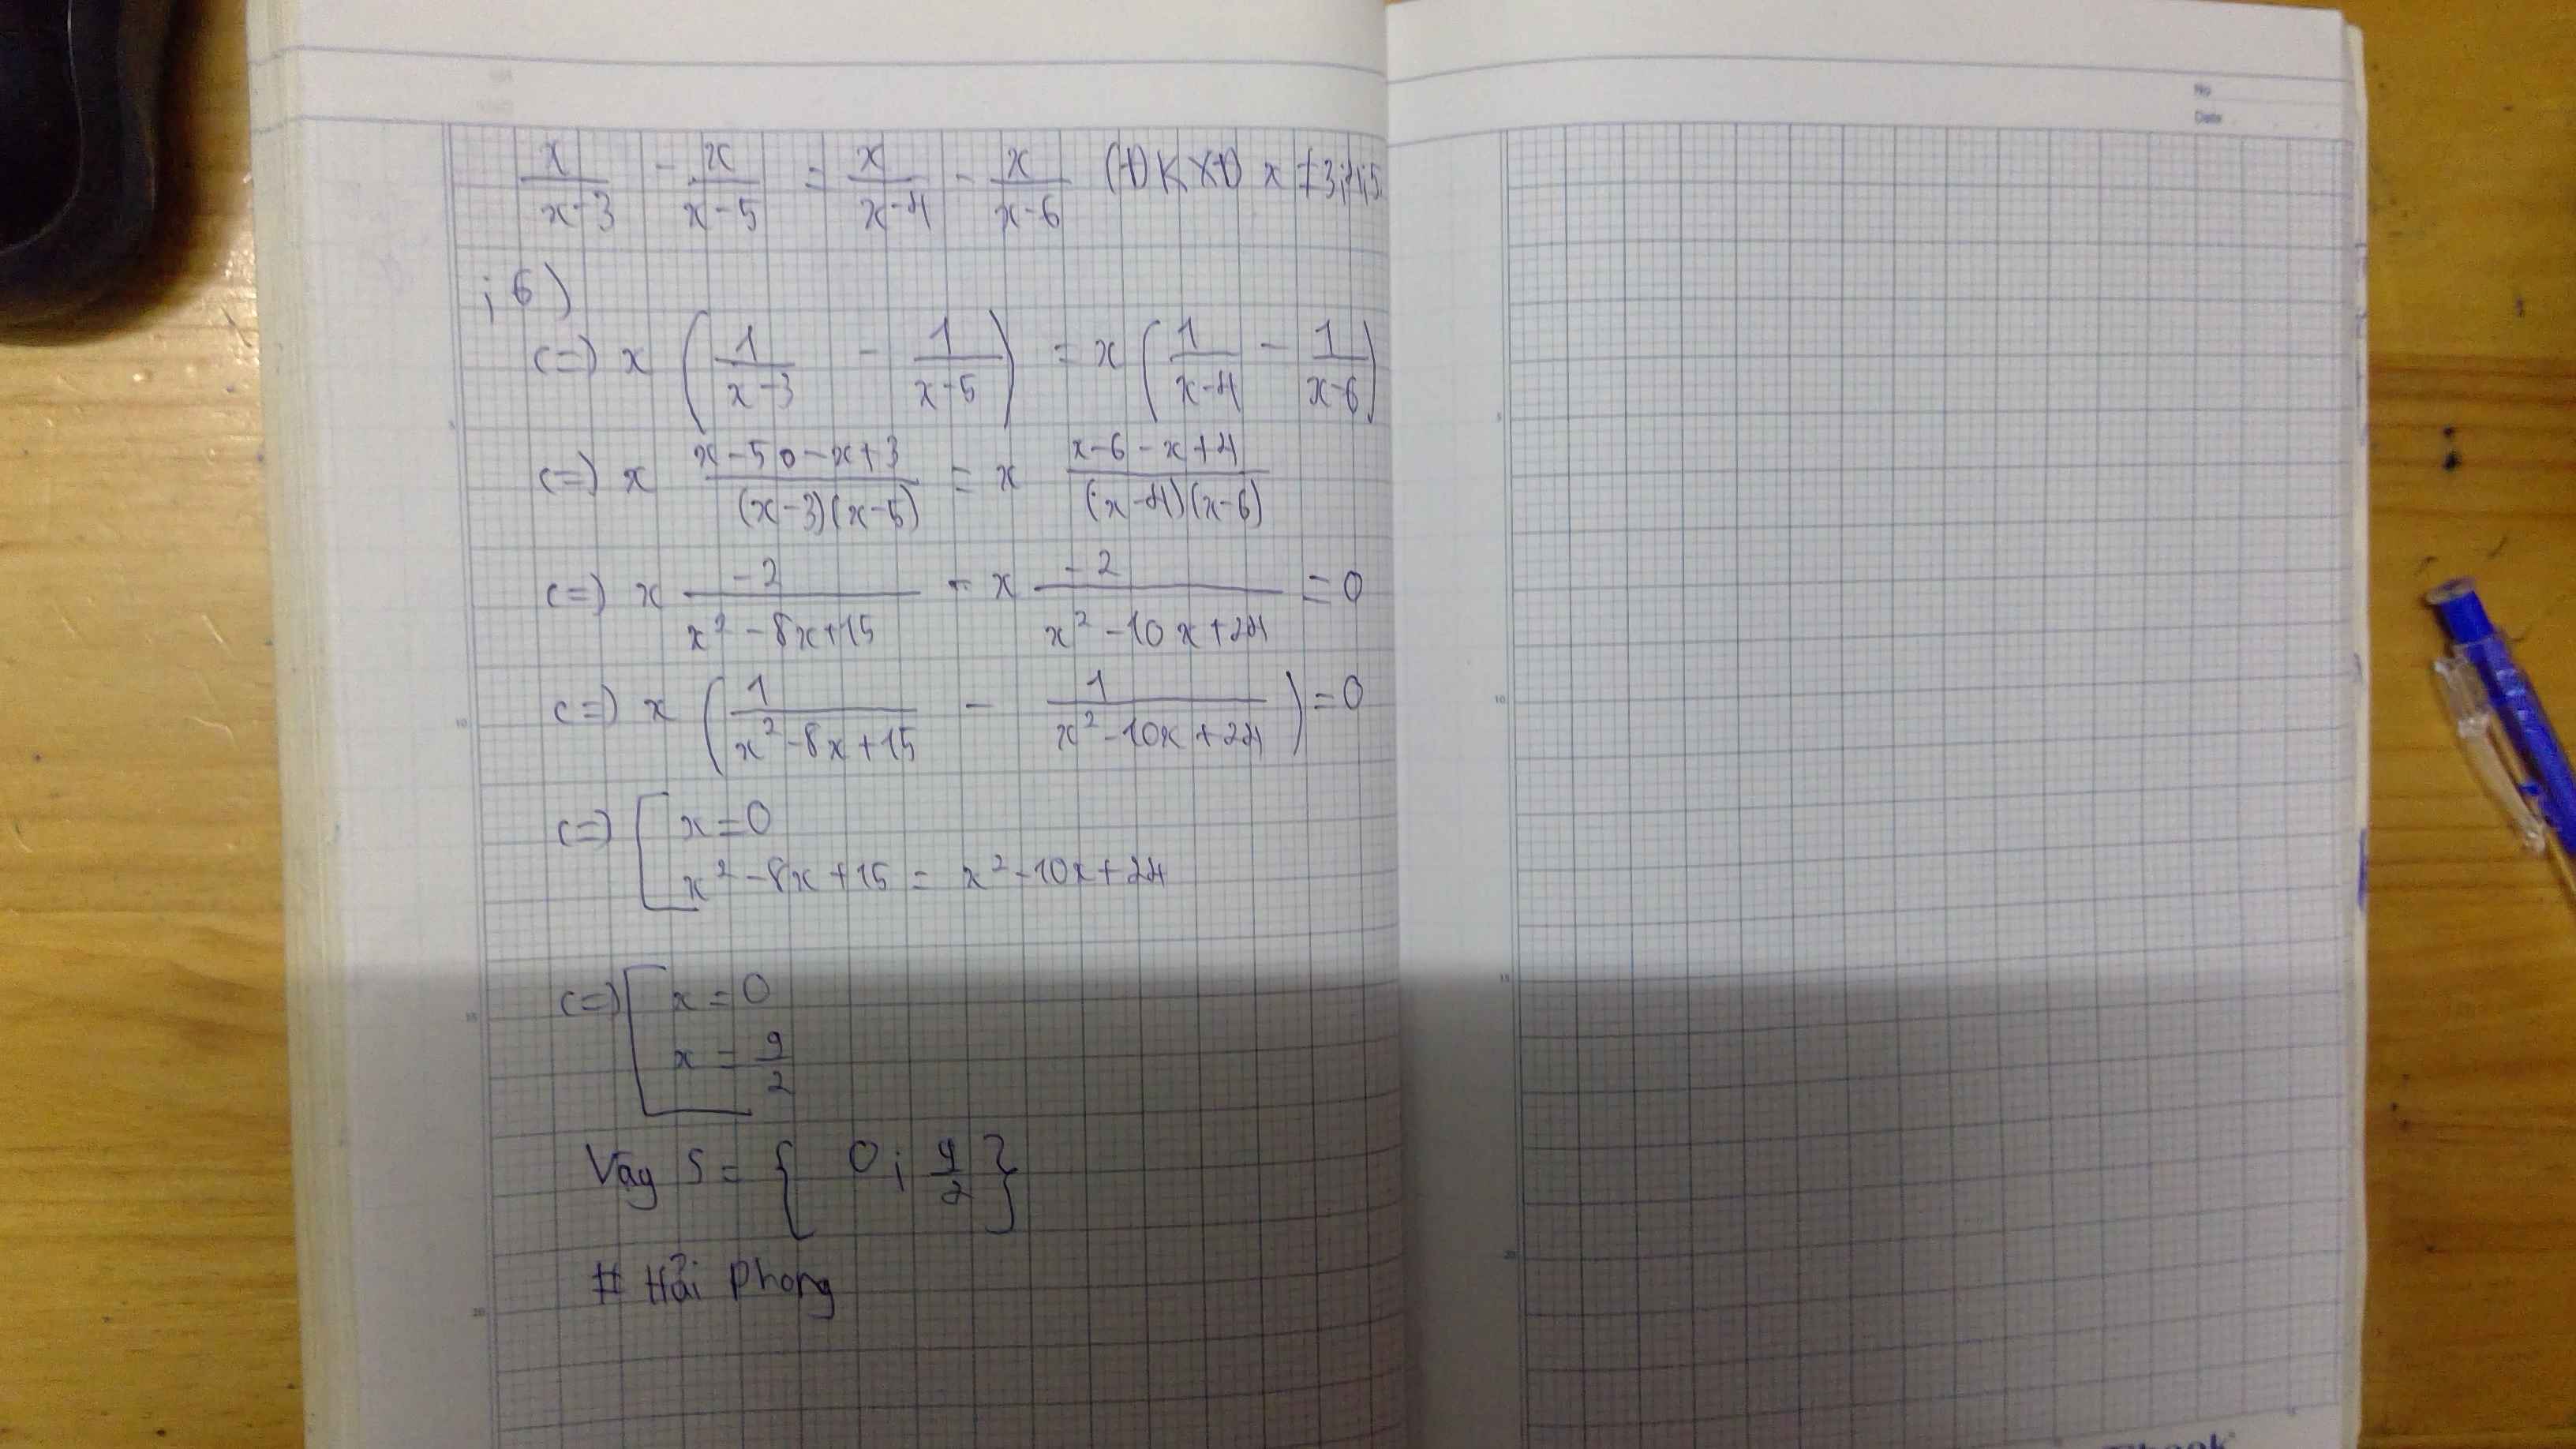 x/(x-3) - x/(x-5) = x/(x-4) - x/(x-6) (ĐKXĐ x ≠ 3;4;5
;6)
<=> x (1/(x-3) - 1/(x-5)) = x (1/(x-4) - 1/(x-6))
<=> x (x-5-x+3)/((x-3)(x-5)) = x (x-6-x+4)/((x-4)(x-6))
<=> x (-2)/(x²-8x+15) - x (-2)/(x²-10x+24) = 0
<=> x (1/(x²-8x+15) - 1/(x²-10x+24)) = 0
<=> [ x=0
x²-8x+15 = x²-10x+24
<=> [ x=0
x = 9/2
Vậy S = { 0; 9/2 }
# Hải Phong
No
Date
5
10
15
20
5
10
15
20